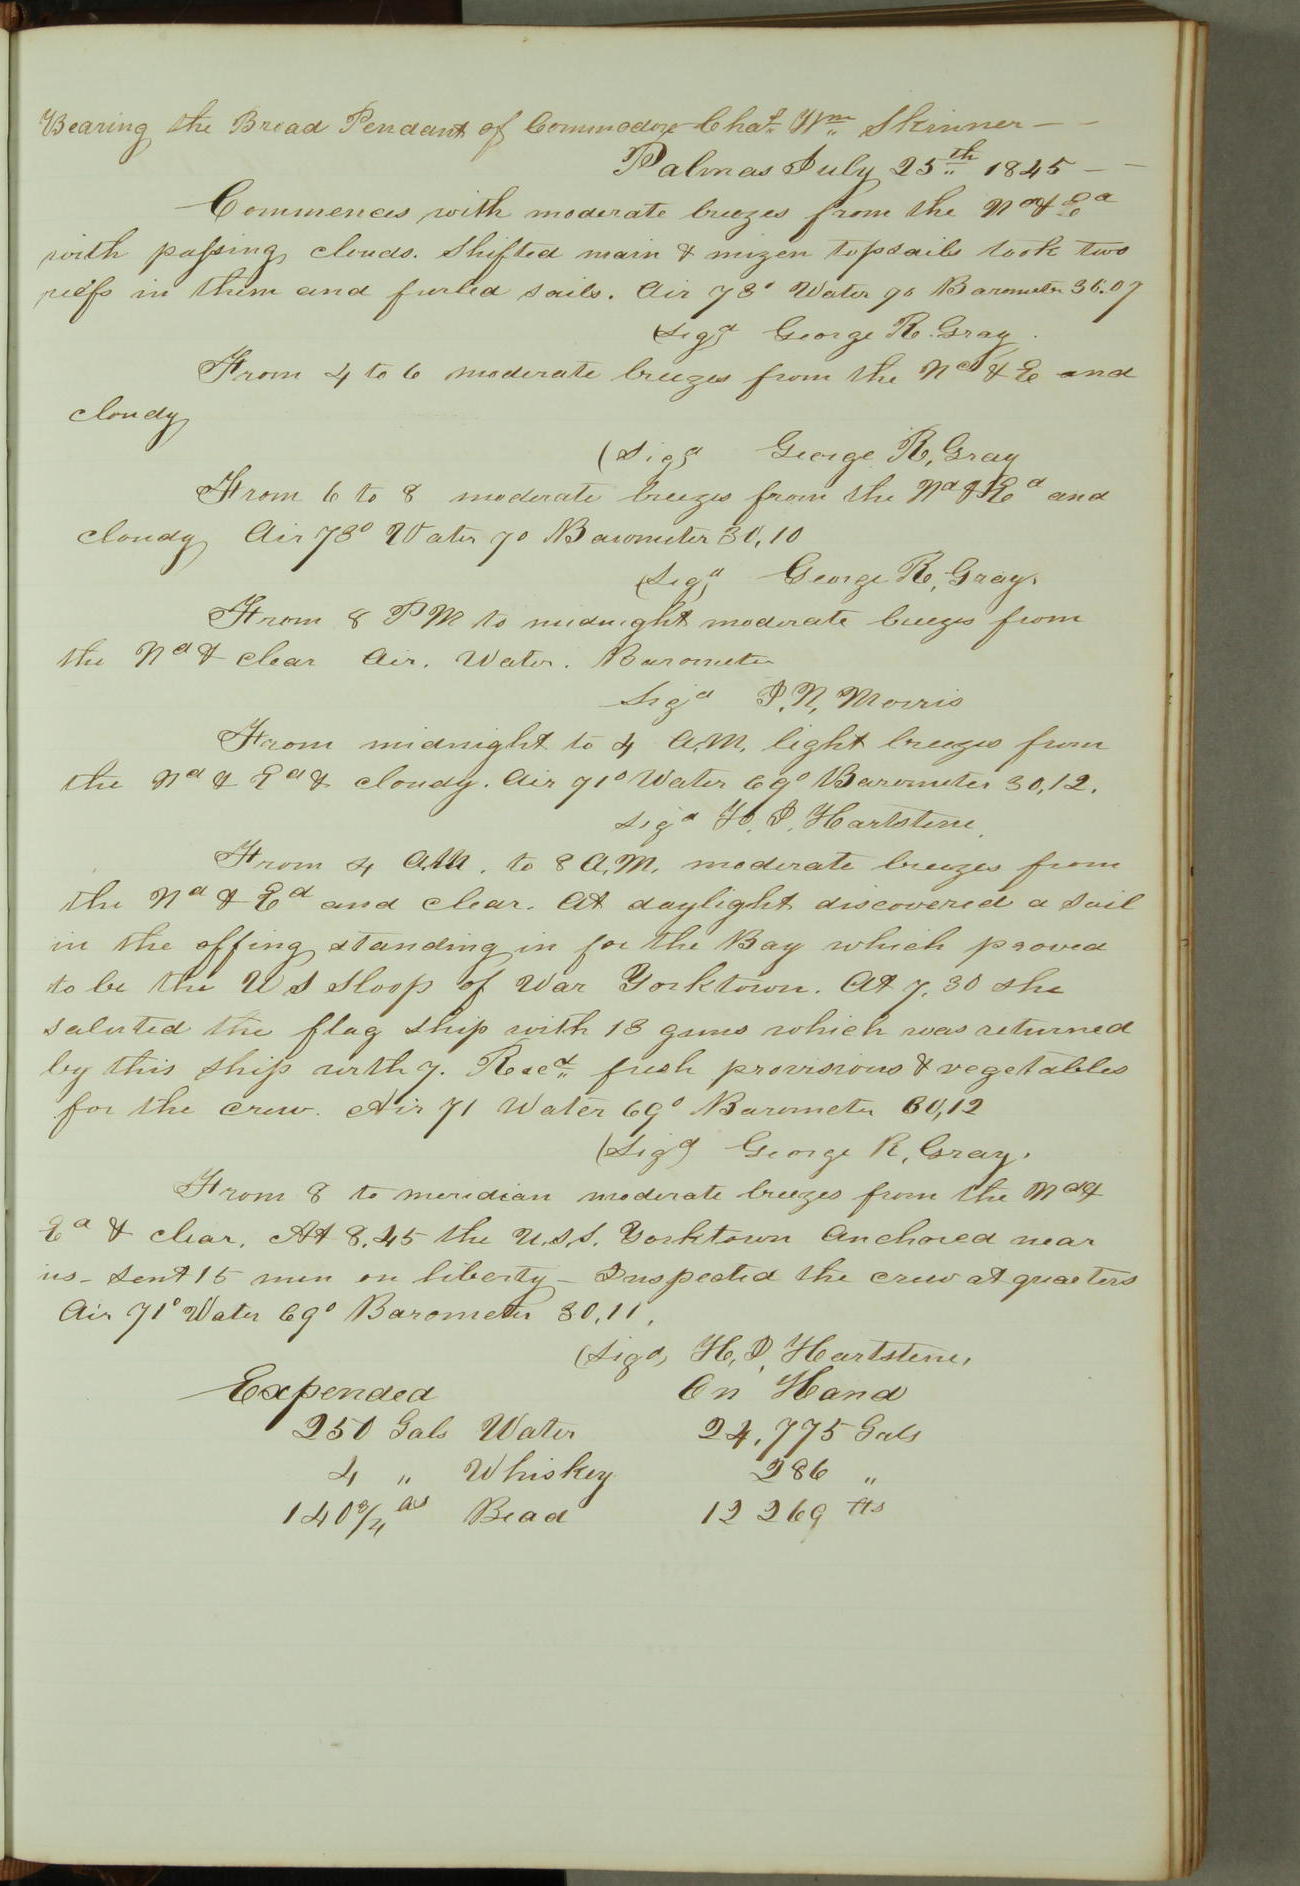 Bearing the Broad Pendant of Commodore Chas Wm Skinner — —
Palmas July 25th 1845 — —
Commences with moderate breezes from the Nd & Ed
with passing clouds. Shifted main & mizen topsails took two
reefs in them and furled sails. Air 73° Water 70 Barometer 30.07
(Sigd George R. Gray.
From 4 to 6 moderate breezes from the Nd & E and
cloudy
(Sigd George R. Gray
From 6 to 8 moderate breezes from the Nd & Ed and
cloudy Air 73° Water 70 Barometer 30,10
(Sigd George R. Gray.
From 8 PM to midnight moderate breezes from
the Nd & clear Air. Water. Barometer
Sigd I. N. Morris
From midnight to 4 A.M. light breezes from
the Nd & Ed & cloudy. Air 71° Water 69° Barometer 30,12.
Sigd H. I. Hartstene.
From 4 A.M. to 8 A.M. moderate breezes from
the Nd & Ed and clear. At daylight discovered a sail
in the offing standing in for the Bay which proved
to be the U S Sloop of War Yorktown. At 7.30 she
saluted the flag ship with 13 guns which was returned
by this ship with 7. Recd fresh provisions & vegetables
for the crew. Air 71 Water 69° Barometer 30,12
(Sigd George R. Gray.
From 8 to meridian moderate breezes from the Nd &
Ed & clear. At 8.45 the U.S.S. Yorktown Anchored near
us – Sent 15 men on liberty – Inspected the crew at quarters
Air 71° Water 69° Barometer 30,11.
(Sigd, H. I. Hartstene,
Expended On Hand
250 Gals Water 24,775 Gals
4 " Whiskey 286 "
140 3/4 Bead 12 269 lbs